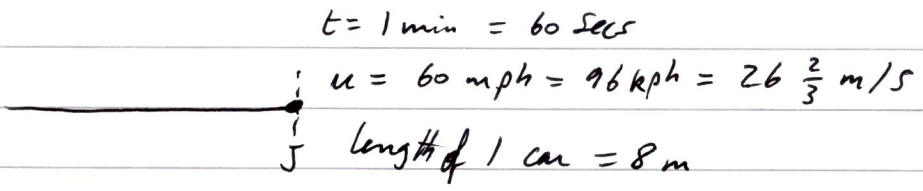 t = 1 min = 60 Secs
u = 60 mph = 96 kph = 26 2/3 m/s
J length of 1 car = 8 m